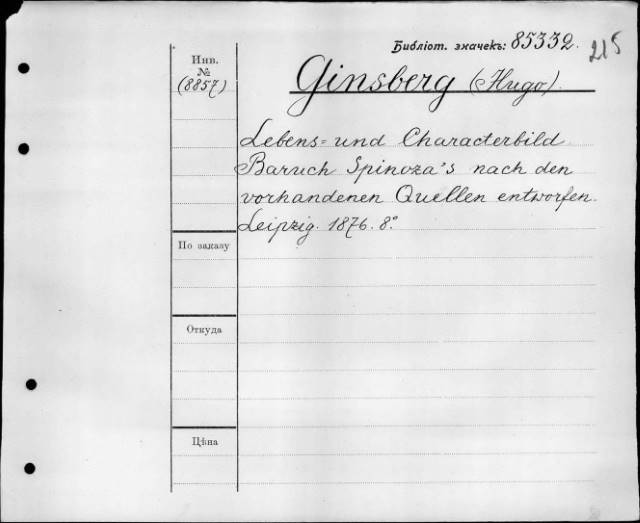 Библіот. значекъ: 85332.
215
Инв.
№
(8857)
Ginsberg (Hugo).
Lebens= und Characterbild
Baruch Spinoza's nach den
vorhandenen Quellen entworfen.
Leipzig. 1876. 8°.
По заказу
Откуда
Цѣна